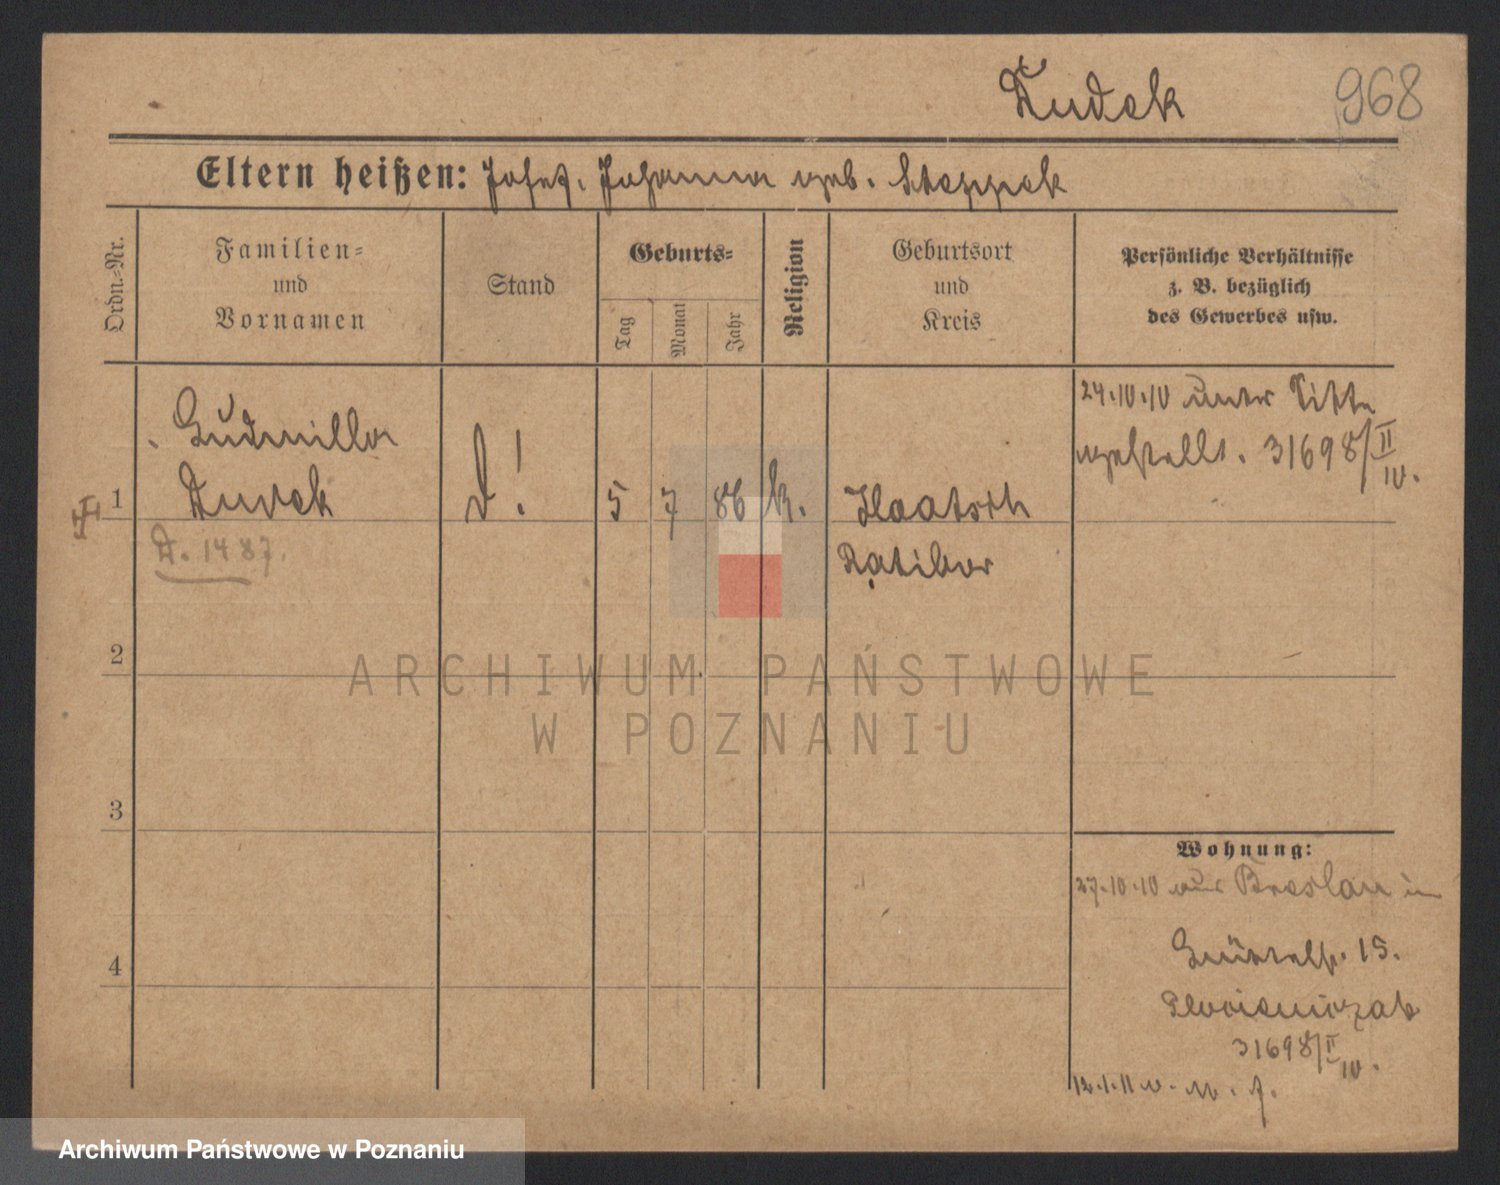 Dudek 968
Eltern heißen: Josef. Johanna geb. Steppek
Ordn.-Nr.
Familien-
und
Vornamen
Stand
Geburts-
Tag
Monat
Jahr
Religion
Geburtsort
und
Kreis
Persönliche Verhältnisse
z. B. bezüglich
des Gewerbes usw.
24.10.10 unter Sitte
gestellt. 31698/II
10.
Ludmilla
1 Dudek D! 5 7 86 K. Haatsch
D. 1487.
Ratibor
2
3
4
Wohnung:
27.10.10 aus Breslau in
15.
31698/II
10.
12.1.11
ARCHIWUM PAŃSTWOWE
W POZNANIU
Archiwum Państwowe w Poznaniu